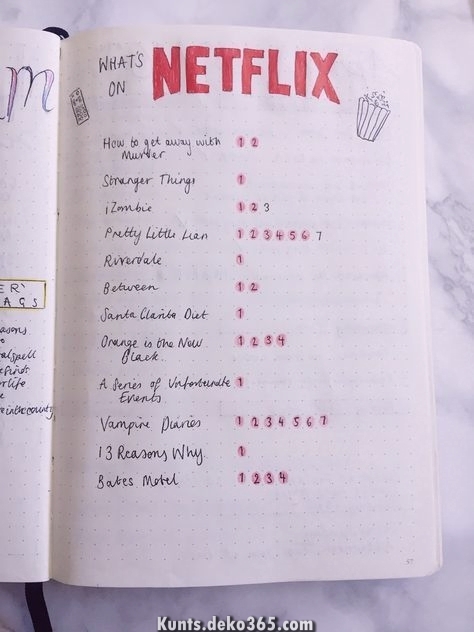 WHAT'S
ON
NETFLIX
How to get away with 1 2
Murder
Stranger Things 1
iZombie 1 2 3
Pretty Little Liars 1 2 3 4 5 6 7
Riverdale 1
Between 1 2
Santa Clarita Diet 1
Orange is the New 1 2 3 4
Black.
A Series of Unfortunate 1
Events
Vampire Diaries 1 2 3 4 5 6 7
13 Reasons Why. 1
Bates Motel 1 2 3 4
57
m
ER'
AGS
easons
Kunts.deko365.com